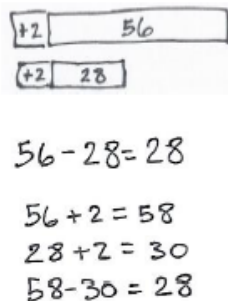 +2 56
+2 28
56-28=28
56+2=58
28+2=30
58-30=28